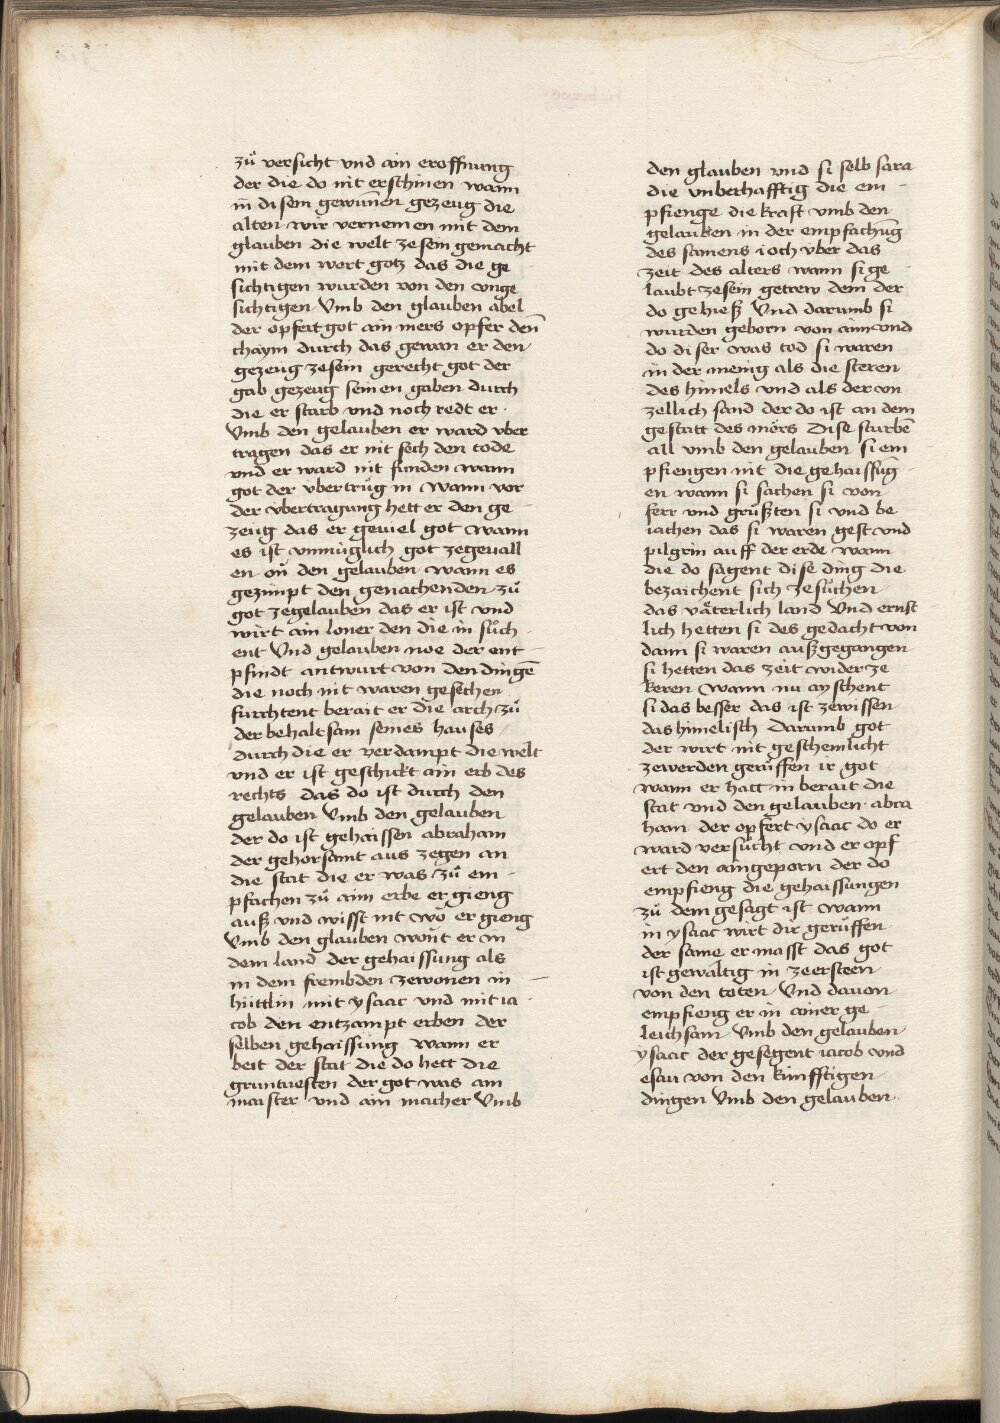 zů versicht vnd ain eroffnung
der die do nit erschinen wann
in disem gewunen gezeug die
alten wir vernemen mit dem
glauben die welt zesein gemacht
mit dem wort gotz das die ge
sichtigen wurden von den vnge
sichtigen Vmb den glauben abel
der opfert got ain mers opfer deñ
chaym durch das gewan er den
gezeug zesein gerecht got der
gab gezeug seinen gaben durch
die er starb vnd noch redt er
Vmb den gelauben er ward vber
tragen das er nit sech den tode
vnd er ward nit funden wann
got der vbertrůg in Wann vor
der vbertragung hett er den ge
zeug das er geuiel got wann
es ist vnmüglich got zegeuall
en on den gelauben wann es
gezimpt den genachenden zů
got zegelauben das er ist vnd
wirt ain loner den die in sůch
ent Vnd gelauben noe der ent
pfindt antwurt von den dingē
die noch nit waren gesechen
furchtent berait er die arch zů
der behaltsam seines hauses
durch die er verdampt die welt
vnd er ist geschickt ain erb des
rechts das do ist durch den
gelauben Vmb den gelauben
der do ist gehaissen abraham
der gehorsamt aus zegen an
die stat die er was zů em
pfachen zů aim erbe er gieng
auß vnd wisst nit wo er gieng
Vmb den glauben wont er in
dem land der gehaissung als
in dem frembden zewonen in
hüttlin mit ysaac vnd mit ia
cob den entzampt erben der
selben gehaissung wann er
beit der stat die do hett die
gruntuesten der got was ain
maister vnd ain macher Vmb
den glauben vnd si selb sara
die vnberhafftig die em
pfienge die kraft vmb den
gelauben in der empfachūg
des samens ioch vber das
zeit des alters wann si ge
laubt zesein getrew dem der
do gehieß Vnd darumb si
wurden geborn von aim vnd
do diser was tod si waren
in der menig als die steren
des himels vnd als der vn
zellich sand der do ist an dem
gestatt des mörs Dise sturbē
all vmb den gelauben si em
pfiengen nit die gehaissūg
en wann si sachen si von
ferr vnd grüßten si vnd be
iachen das si waren gest vnd
pilgrin auff der erde wann
die do sagent dise ding die
bezaichent sich zesůchen
das väterlich land Vnd ernst
lich hetten si des gedacht von
dann si waren außgegangen
si hetten das zeit wider ze
keren Wann nu ayschent
si das besser das ist zewissen
das himelisch Darumb got
der wirt nit geschemlicht
zewerden gerůffen ir got
wann er hatt in berait die
stat vnd den gelauben abra
ham der opfert ysaac do er
ward versůcht vnd er opf
ert den aingeporn der do
empfieng die gehaissungen
zů dem gesagt ist wann
in ysaac wirt dir gerůffen
der same er masst das got
ist gewaltig in zeersteen
von den toten Vnd dauon
empfieng er in ainer ge
leichsam Vmb den gelauben
ysaac der gesegent iacob vnd
esau von den kunfftigen
dingen Vmb den gelauben